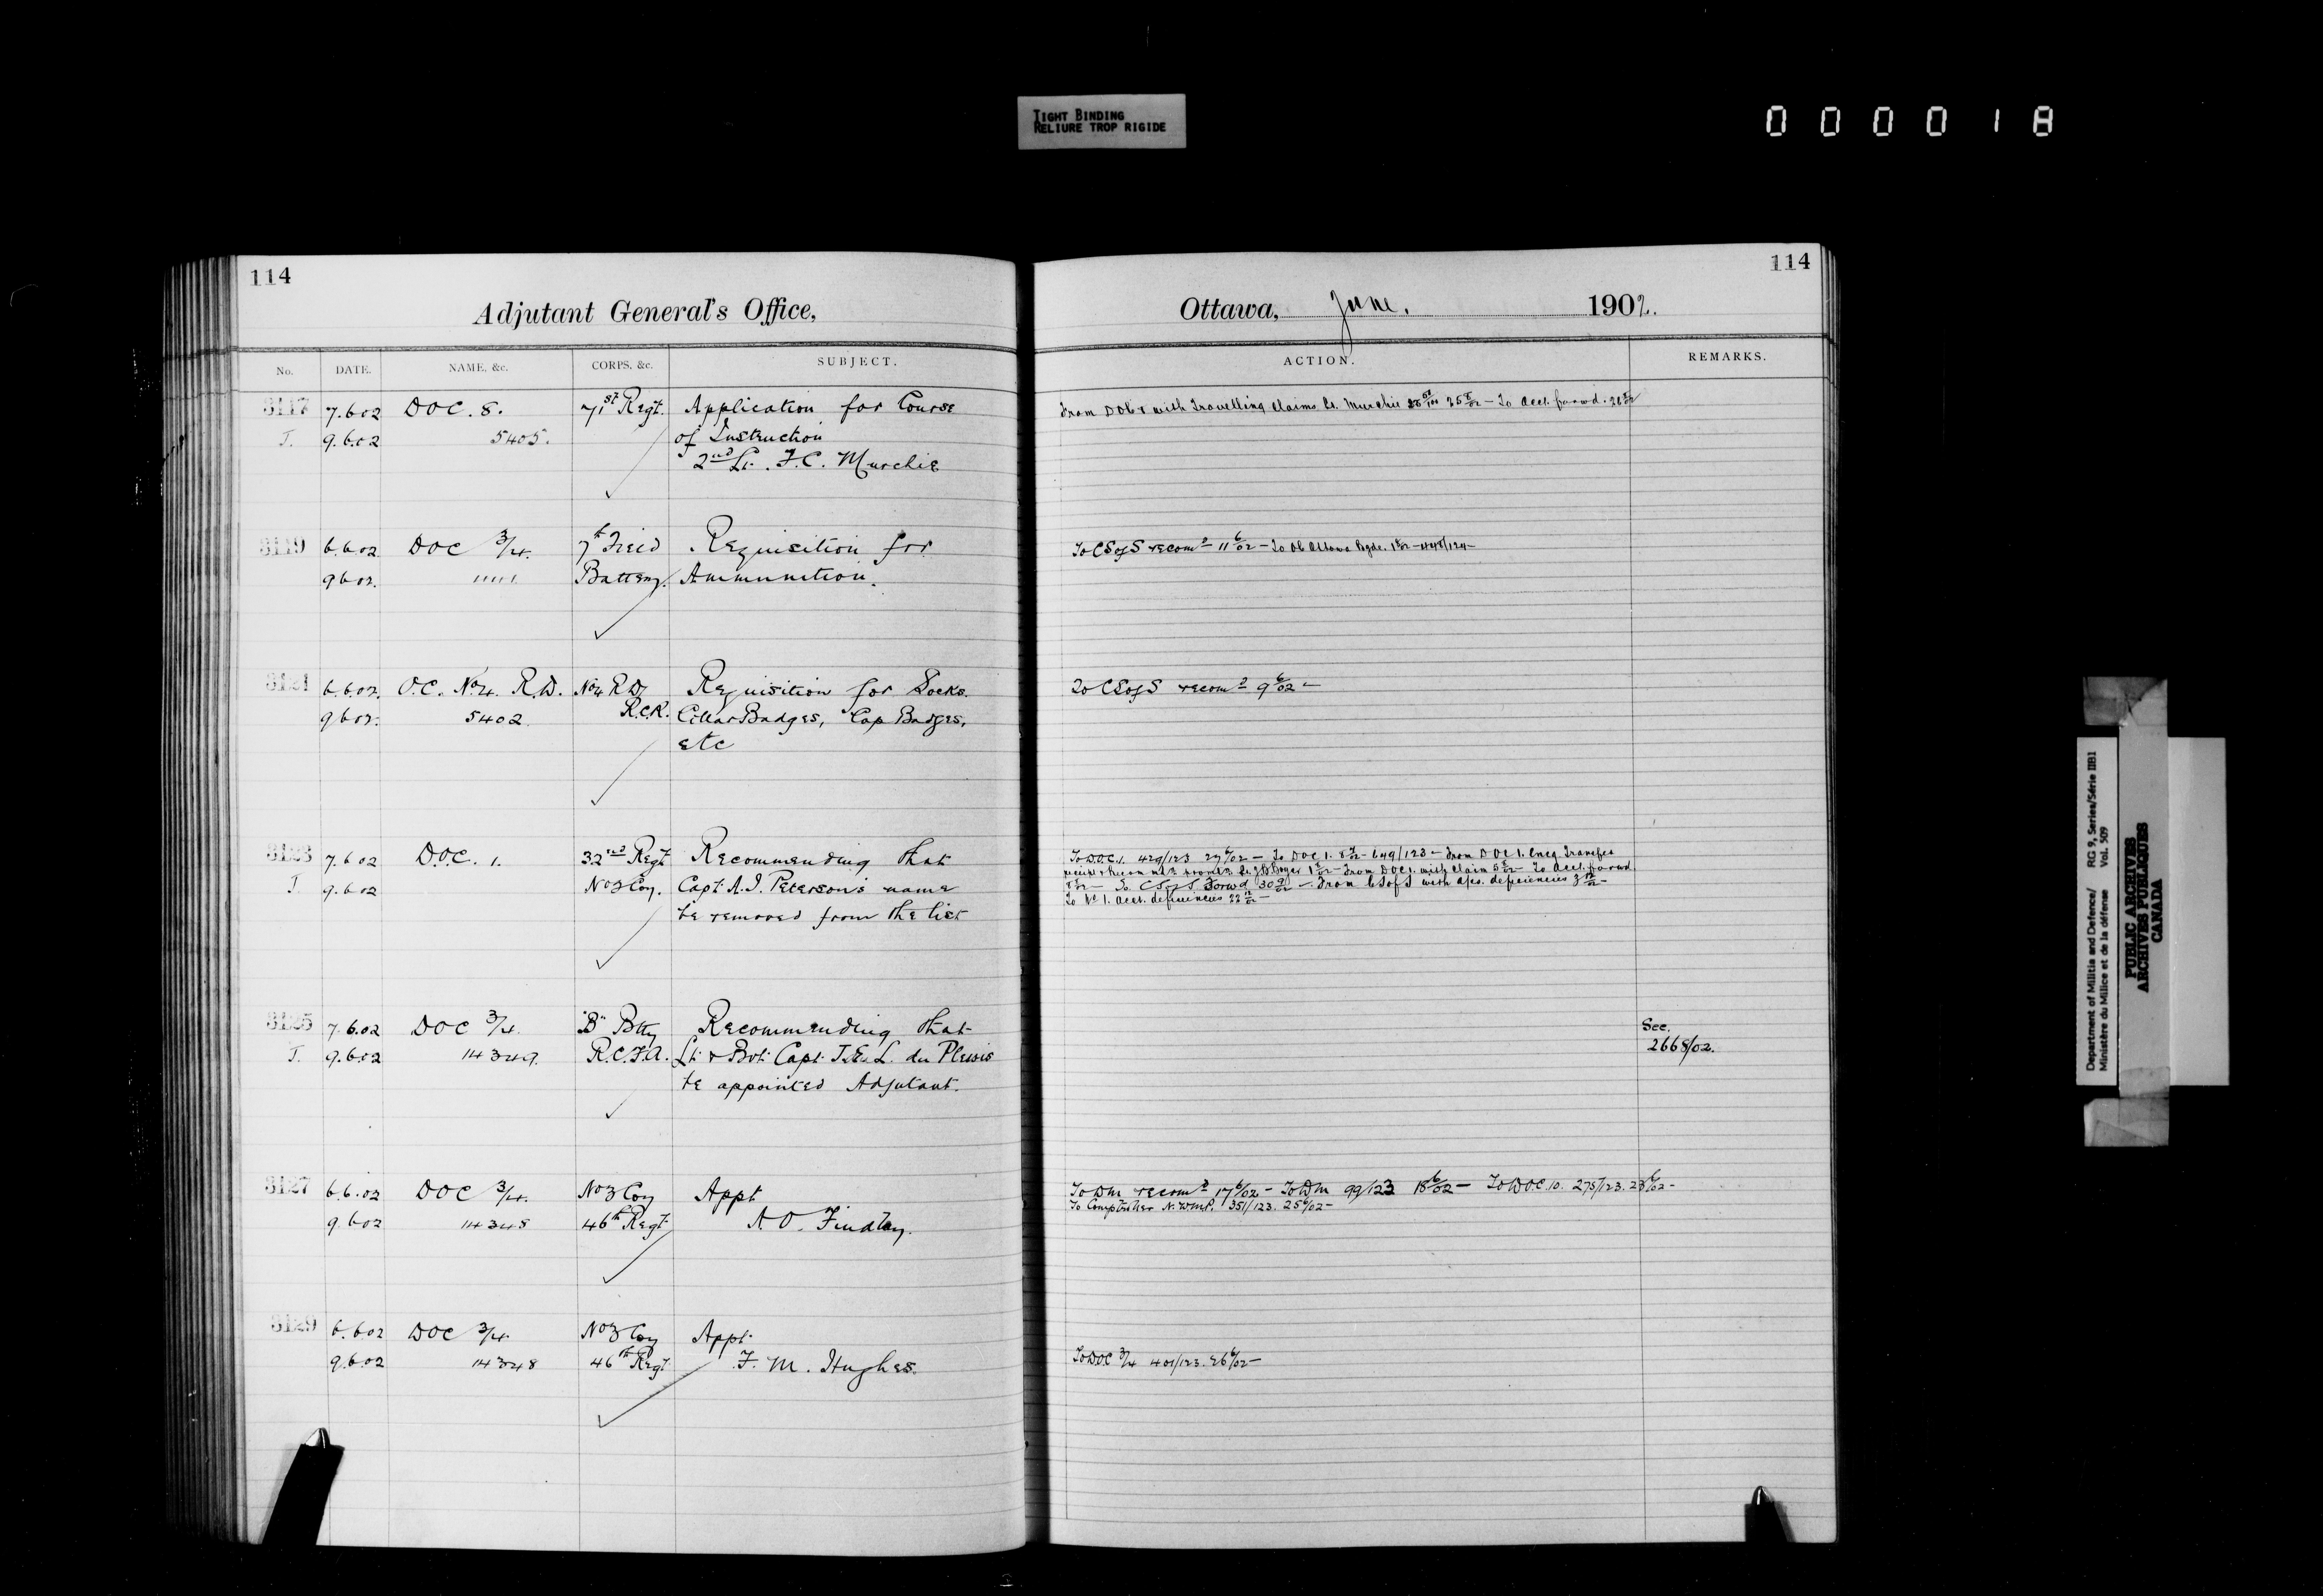 TIGHT BINDING
RELIURE TROP RIGIDE
000018
114
Adjutant General's Office,
No. DATE. NAME, &c. CORPS, &c. SUBJECT.
3117 7.6.02 DOC. 8. 71st Regt. Application for Course
T. 9.6.02 5405. of Instruction
2nd Lt. F.C. Murchie
3119 6.6.02 DOC 3/4. 7th Field Requisition for
9.6.02. 11111 Battery. Ammunition.
3121 6.6.02. O.C. No 4. R.D. No 4 R.D. Requisition for Socks.
9.6.02. 5402. R.C.R. Collar Badges, Cap Badges,
etc
3123 7.6.02 D.O.C. 1. 32nd Regt Recommending that
T. 9.6.02 No 3 Coy. Capt. A.I. Peterson's name
be removed from the list
3125 7.6.02 DOC 3/4. "B" Btty Recommending that
T. 9.6.02 14349. R.C.F.A. Lt. & Bvt. Capt. J.E.L. du Plessis
be appointed Adjutant.
3127 6.6.02 DOC 3/4. No 3 Coy Appt
9.6.02 14348 46th Regt. A.O. Findlay.
3129 6.6.02 DOC 3/4. No 3 Coy Appt.
9.6.02 14348 46th Regt F. M. Hughes.
114
Ottawa, June. 1902.
ACTION. REMARKS.
From DOC 8 with Travelling Claims Lt. Murchie 25 8/02 — To Acct. forwd. 26 8/02
To CSofS recomd 11 6/02 — To Ottawa Bgde. 448/124 —
To CSofS recomd 9 6/02 —
To D.O.C. 1. 429/123 27 6/02 — To DOC 1. 649/123 — From DOC 1. Transfer
From DOC 1. with Claim — To Acct. forwd.
To CSofS Forwd 30 9/02 — From CSofS with deficiencies
To No 1. Acct. deficiencies 22 —
See.
2668/02.
To DM recomd 17 6/02 — To DM 99/123 18 6/02 — To DOC. 10. 275/123. 23 6/02 —
To Comptroller N.W.M.P. 351/123. 25 6/02 —
To DOC 3/4 401/123. 26 6/02 —
Department of Militia and Defence/ RG 9, Series/Série IIB1
Ministère du Milice et de la défense Vol. 509
PUBLIC ARCHIVES
ARCHIVES PUBLIQUES
CANADA